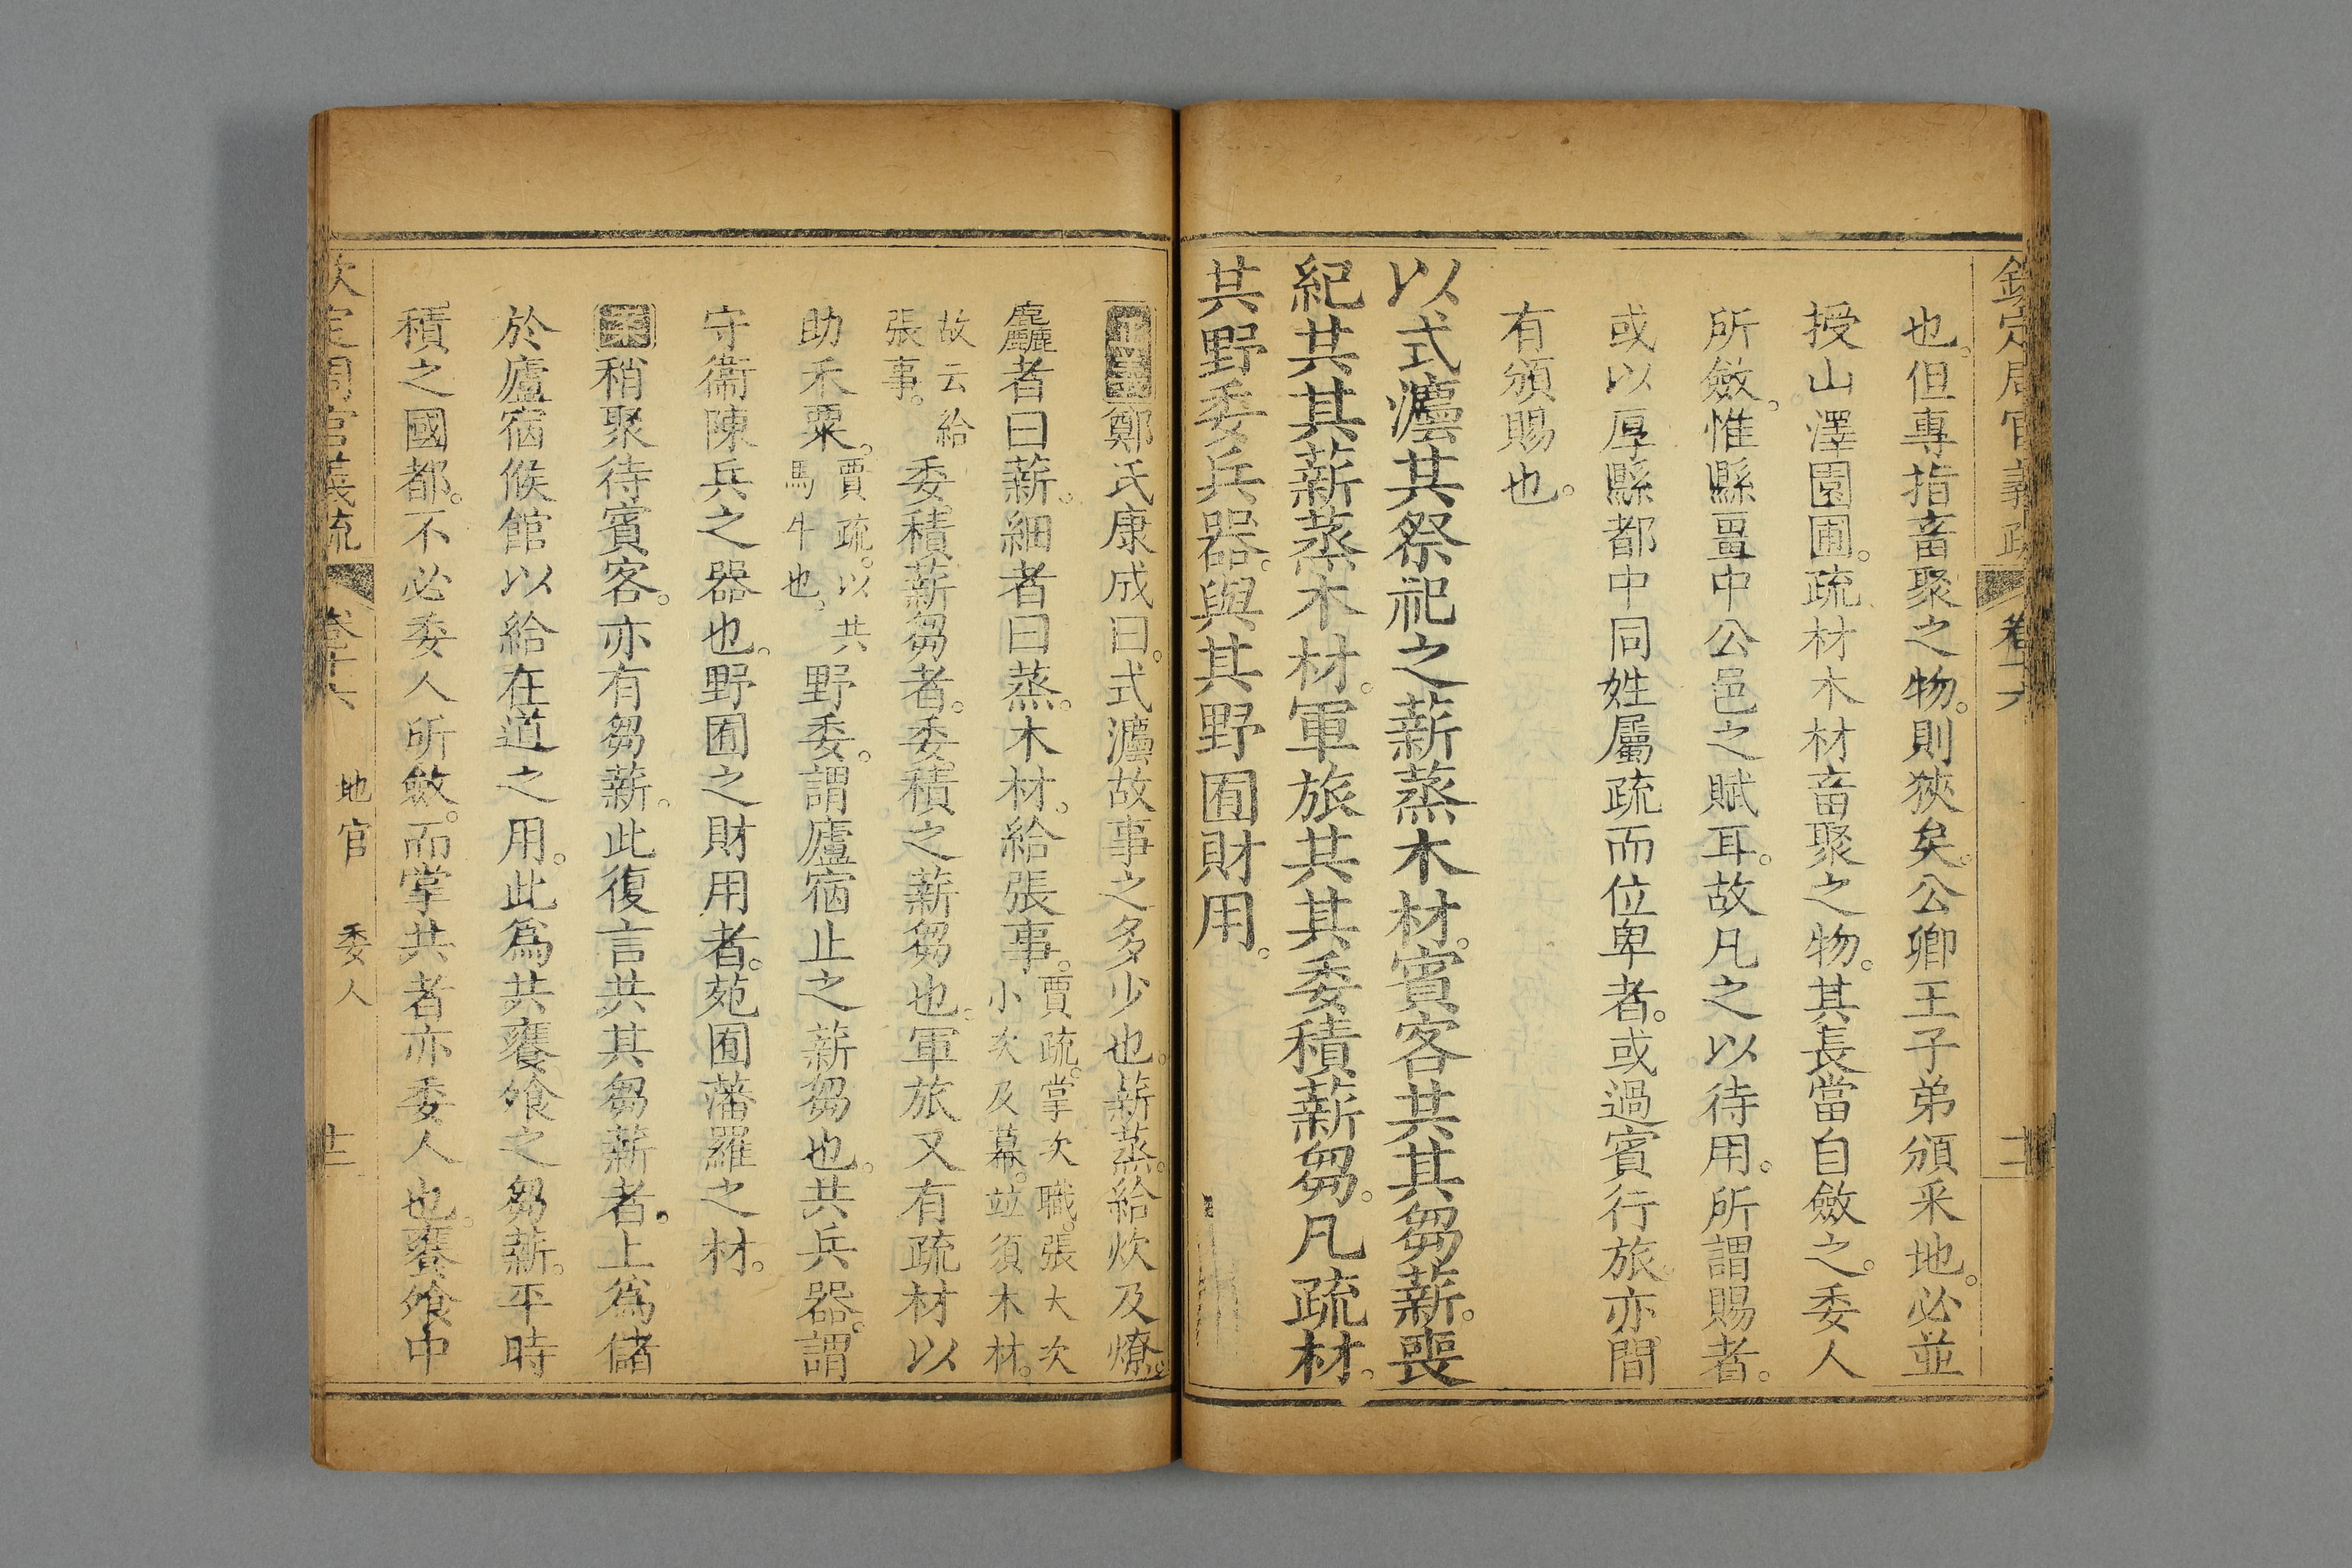 欽定周官義疏 卷十六 十二
也。但專指畜聚之物。則狹矣。公卿王子弟頒采地。必並
授山澤園圃。疏材木材畜聚之物。其長當自斂之。委人
所斂。惟縣畺中公邑之賦耳。故凡之以待用。所謂賜者。
或以厚縣都中同姓屬疏而位卑者。或過賓行旅。亦間
有頒賜也。
以式灋共祭祀之薪蒸木材。賓客共其芻薪。喪
紀共其薪蒸木材。軍旅共其委積薪芻。凡疏材。
共野委兵器。與其野囿財用。
正義鄭氏康成曰。式灋故事之多少也。薪蒸。給炊及燎。
麤者曰薪。細者曰蒸。木材。給張事。賈疏。掌次職。張大次
小次及幕。竝須木材。
故云給
張事。委積薪芻者。委積之薪芻也。軍旅又有疏材以
助禾粟。賈疏。以共
馬牛也。野委。謂廬宿止之薪芻也。共兵器。謂
守衞陳兵之器也。野囿之財用者。苑囿藩羅之材。
案稍聚待賓客。亦有芻薪。此復言共其芻薪者。上爲儲
於廬宿候館以給在道之用。此爲共饔飧之芻薪。平時
積之國都。不必委人所斂。而掌共者亦委人也。饔飧中
欽定周官義疏 卷十六 地官 委人 十二